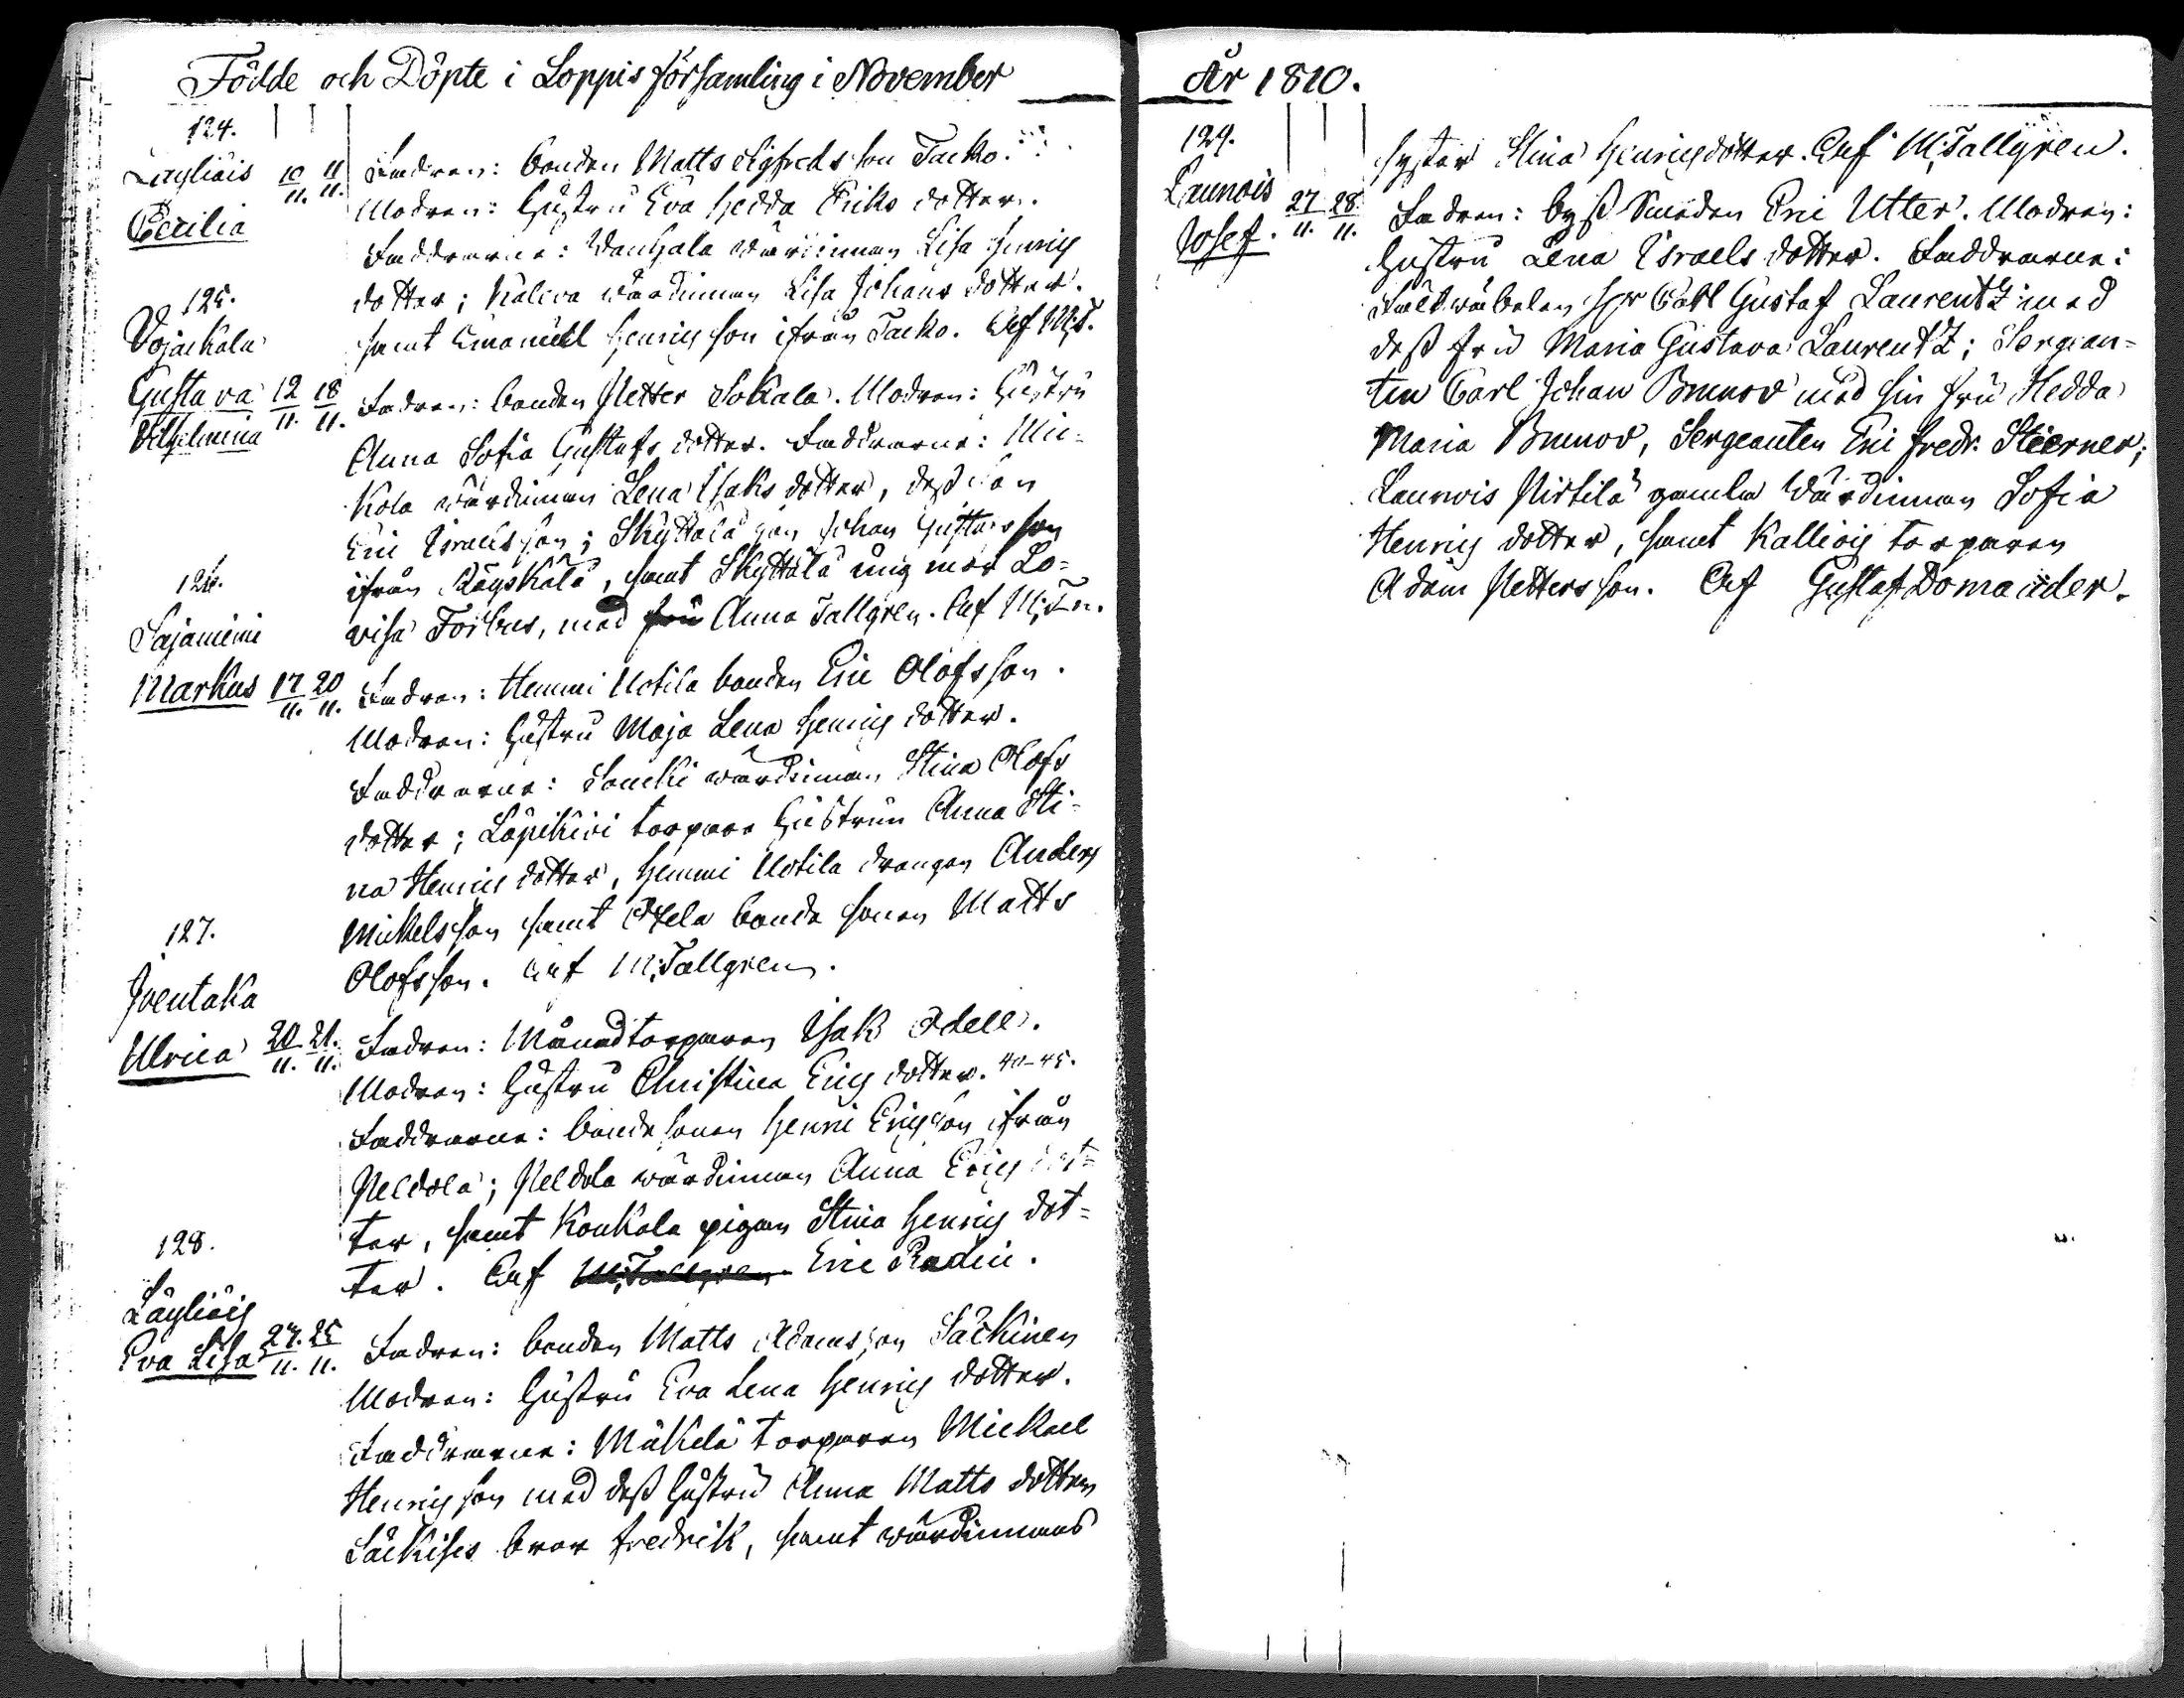 Födde och Döpte i Loppis församling i November
124.
Läyliäis
Cecilia
10/11. 11/11.
Fadren: bonden Matts Sigfreds son Jacko.
Modren: Hustru Eva Hedda Eriks dotter.
Faddrarne: Wanhala wärdinnan Lisa Henrics
dotter; Kaleva wärdinnan Lisa Johans dotter.
samt Emanuel Henrics son ifrån Jacko. Af M:T.
125.
Vojakala
Gustava
Vilhelmina
12/11. 18/11.
Fadren: bonden Petter Sokala. Modren: Hustru
Anna Sofia Gustafs dotter. Faddrarne: Mic-
kola wärdinnan Lena Isaks dotter, dess son
Eric Israels son; Skyttälä son Johan Gustafs son
ifrån Räyskälä, samt Skyttälä ung mor Lo-
visa Forbus, med fru Anna Tallgren. Af M:T n.
126.
Sajaniemi
Markus
17/11. 20/11.
Fadren: Hemmi Uotila bonden Eric Olofs son.
Modren: Hustru Maja Lena Henrics dotter.
Faddrarne: Soucki wärdinnan Stina Olofs
dotter; Läpikivi torpare Hustrun Anna Sti-
na Henrics dotter, Hemmi Uotila drängen Anders
Mickels son samt Ottela bonde sonen Matts
Olofs son. Af M:Tallgren.
127.
Joentaka
Ulrica
20/11. 21/11.
Fadren: Månadtorparen Isak Edell.
Modren: Hustru Christina Erics dotter. 40-45.
Faddrarne: bonde sonen Henric Erics son ifrån
Peldola; Peldola wärdinnan Anna Erics dot-
ter, samt Koukola pigan Stina Henrics dot-
ter. Af M:Tallgren Eric Radin.
128.
Läyliäis
Eva Lisa
24/11. 25/11.
Fadren: bonden Matts Adams son Säckinen
Modren: Hustru Eva Lena Henrics dotter.
Faddrarne: Mäkelä torparen Mickael
Henrics son med dess Hustru Anna Matts dotter,
Säckises bror Fredrik, samt wärdinnans
År 1810.
syster Stina Henrics dotter. Af M:Tallgren.
129.
Launois
Josef.
27/11. 28/11.
Fadren: byss Smeden Eric Utter. Modren:
Hustru Lena Israels dotter. Faddrarne:
Fältwäbelen Hr Carl Gustaf Laurentz med
dess fru Maria Gustava Laurentz; Sergean-
ten Carl Johan Brunov med sin fru Hedda
Maria Brunov, Sergeanten Eric Fredr. Stierner;
Launois Pirtilä gamla Wärdinnan Sofia
Henrics dotter, samt Kalliois torparen
Adam Petters son. Af Gustaf Domander.